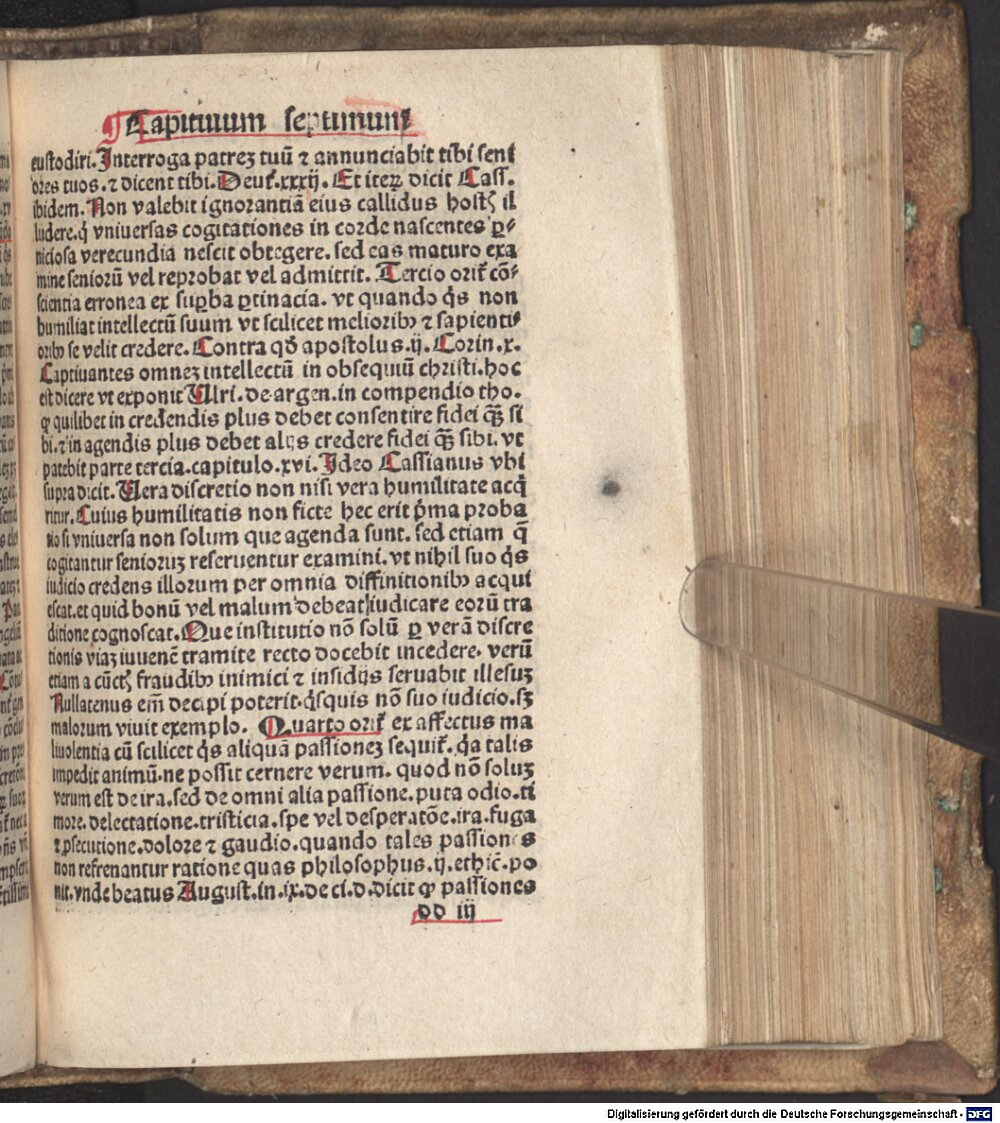 Capitulum septimum
custodiri. Interroga patreʒ tuū ⁊ annunciabit tibi seni
ores tuos. ⁊ dicent tibi. Deut̄. xxxij. Et iteꝝ dicit Cass.
ibidem. Non valebit ignorantiā eius callidus hostꝭ il
ludere. q̇ vniuersas cogitationes in corde nascentes ꝑ⸗
niciosa verecundia nescit obtegere. sed eas maturo exa
mine senioꝛū vel reprobat vel admittit. Tercio orit̄ cō⸗
scientia erronea ex suꝑba ꝑtinacia. vt quando q̇s non
humiliat intellectū suum vt scilicet melioribꝰ ⁊ sapienti⸗
oribꝰ se velit credere. Contra qđ apostolus. ij. Corin. x.
Captiuantes omneʒ intellectū in obsequiū christi. hoc
est dicere vt exponit Ulri. de argen. in compendio tho.
ꝙ quilibet in credendis plus debet consentire fidei qꝫ̄ si
bi. ⁊ in agendis plus debet alijs credere fidei qꝫ̄ sibi. vt
patebit parte tercia. capitulo. xvi. Ideo Cassianus vbi
supra dicit. Uera discretio non nisi vera humilitate acq̇
ritur. Cuius humilitatis non ficte hec erit p̄ma proba
tio si vniuersa non solum que agenda sunt. sed etiam q̄
cogitantur senioꝛuʒ reseruentur examini. vt nihil suo q̇s
iudicio credens illorum per omnia diffinitionibꝰ acqui
escat. et quid bonū vel malum debeat iudicare eoꝛū tra
ditione cognoscat. Que institutio nō solū ꝑ verā discre
tionis viaʒ iuuenē tramite recto docebit incedere. verū
etiam a cūctꝭ fraudibꝰ inimici ⁊ insidijs seruabit illesuʒ
Nullatenus em̄ decipi poterit. q̇squis nō suo iudicio. sʒ
malorum viuit exemplo. Quarto orit̄ ex affectus ma
liuolentia cū scilicet q̇s aliquā passioneʒ sequit̄. q̇a talis
impedit animū. ne possit cernere verum. quod nō soluʒ
verum est de ira. sed de omni alia passione. puta odio. ti
more. delectatione. tristicia. spe vel desperatōe. ira. fuga
⁊ ꝑsecutione. dolore ⁊ gaudio. quando tales passiones
non refrenantur ratione quas philosophus. ij. ethic̄. po
nit. vnde beatus August. in. ix. de ci. d. dicit ꝙ passiones
dd iij
Digitalisierung gefördert durch die Deutsche Forschungsgemeinschaft - DFG